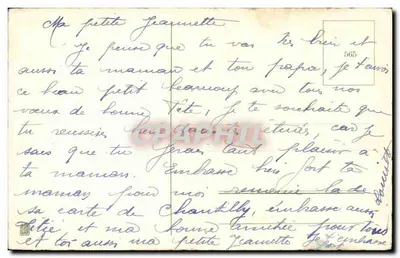 Ma petite Jeannette
Je pense que tu vas très bien et
aussi ta maman et ton papa, je t'envoi
ce beau petit beaucoup avec tous nos
vœux de bonne fête, Je te souhaite que
tu réussisses bien dans études, car je
sais que tu ferais tant plaisir à
ta maman. Embrasse bien fort ta
maman pour moi remercie la de
sa carte de Chantilly, embrasse aussi
et ma bonne amitiée pour tous
et toi aussi ma petite Jeannette Je t'embrasse
565